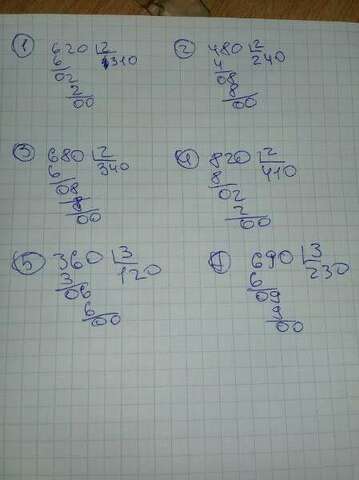 1 620 2
6 310
02
2
00
2 480 2
4 240
08
8
00
3 680 2
6 340
08
8
00
4 820 2
8 410
02
2
00
5 360 3
3 120
06
6
00
690 3
6 230
09
9
00